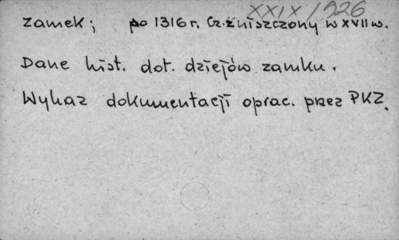 XXIX/926
zamek; po 1316 r. Cz. zniszczony w XVII w.
Dane hist. dot. dziejów zamku.
Wykaz dokumentacji oprac. przez PKZ.